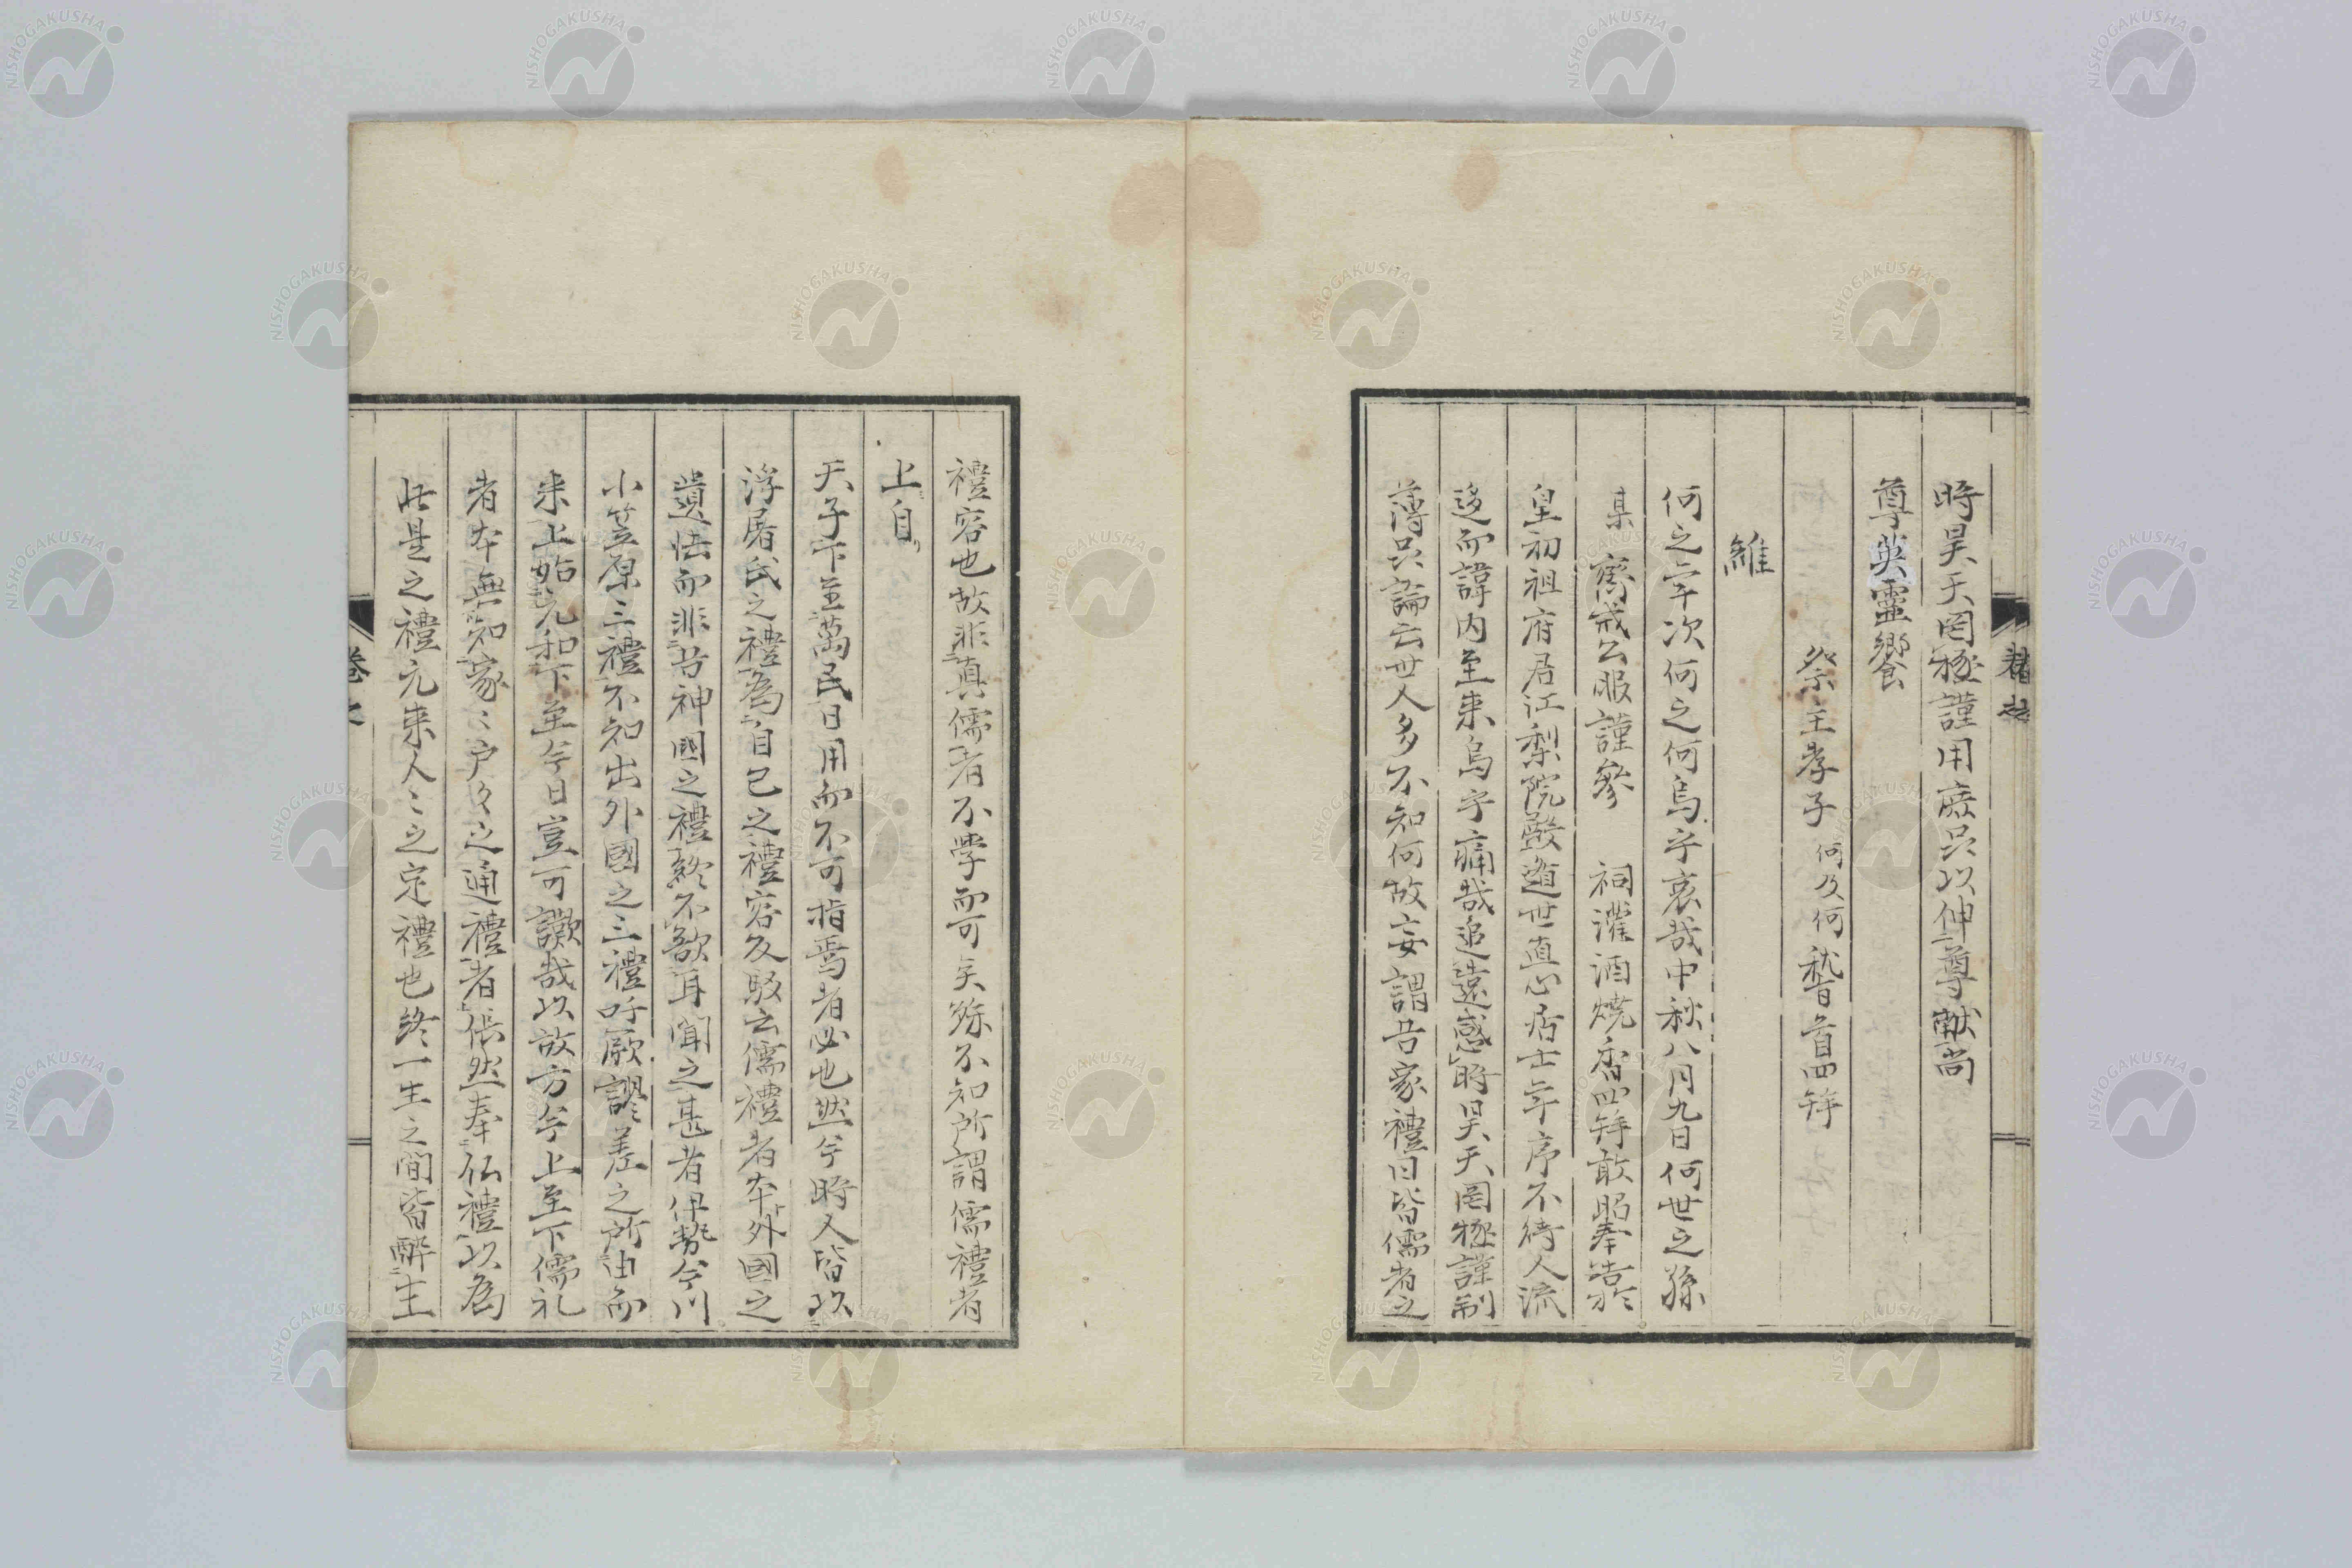 時昊天罔極謹用庶品以伸尊献尚
尊英靈饗
祭主孝子何及何嵆首四拜
維
何之年次何之何烏乎哀哉中秋八月九日何世之孫
某齋戒公服謹參 祠灌酒燒香四拜敢昭奉告於
皇初祖府君江梨院殿遁世直心居士年序不待人流
迻而諱内至来烏乎痛哉追遠感時昊天罔極謹制
薄品論云世人多不知何故妄謂吾家禮曰皆儒者之
禮容也故非真儒者不學而可矣殊不知所謂儒禮者
上自
天子下至萬民日用而不可措焉者必也然今時人皆以
浮屠氏之禮為自己之禮容反駁云儒禮者本外國之
遺法而非吾神國之禮終不欲耳聞之甚者伊勢今川
小笠原三禮不知出外國之三禮呼厥謬差之所由而
来上始元和下至今日豈可歎哉以故方今上至下儒礼
者本無知家〻戸〻之通禮者倀然奉仏禮以為
此是之禮元来人〻之定禮也終一生之間皆醉生